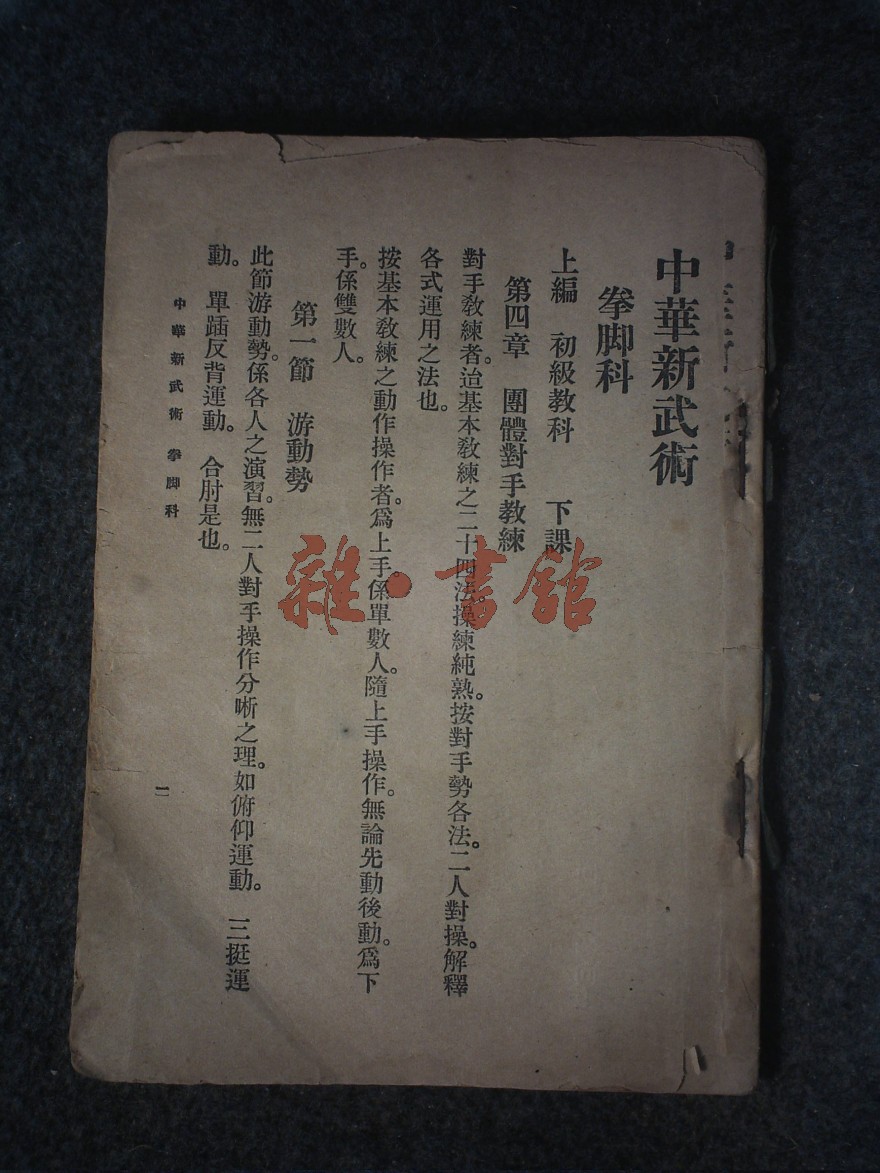 中華新武術
拳脚科
上編　初級教科　下課
第四章　團體對手教練
對手教練者。迨基本教練之二十四法。操練純熟。按對手勢各法。二人對操。解釋
各式運用之法也。
按基本教練之動作操作者。爲上手。係單數人。隨上手操作。無論先動後動。爲下
手。係雙數人。
第一節　游動勢
此節游動勢。係各人之演習。無二人對手操作分晰之理。如俯仰運動。　三挺運
動。　單踊反背運動。　合肘是也。
中華新武術　拳脚科
一
雜·書館